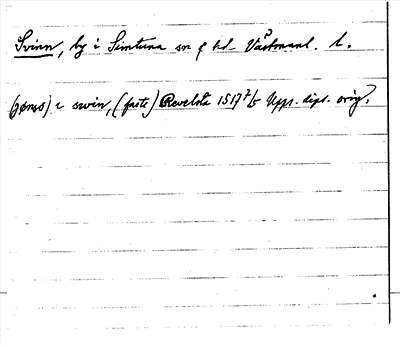 Svinn, by i Simtuna sn o hd Västmanl. l.
(jønss) i swin, (faste) Revelsta 1517 7/5 Upps. dipl. orig.